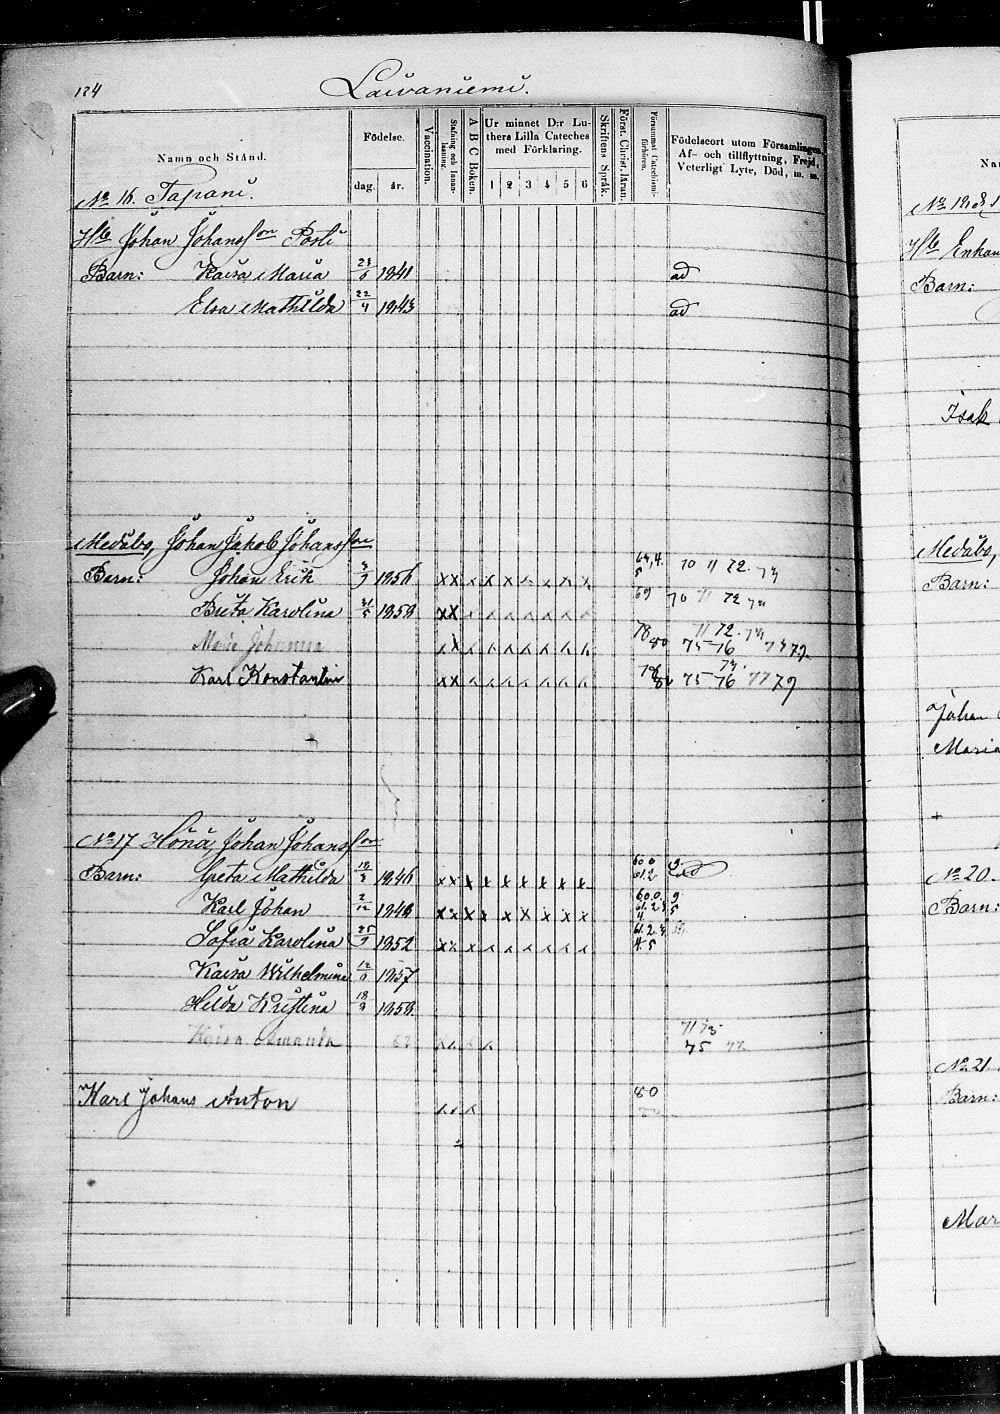 124
Laivaniemi.
Namn och Stånd.
Födelse.
dag.
år.
Vaccination.
Stafning och Innanläsning.
A B C Boken.
Ur minnet D:r Luthers Lilla Cateches med Förklaring.
1 2 3 4 5 6
Skriftens Språk.
Först. Christ. läran.
Försummat Catechismiförhören.
Födelseort utom Församlingen, Af- och tillflyttning, Frejd, Veterligt Lyte, Död, m. m.
No 16. Tapani.
Hde Johan Johansson Posti
Barn: Kaisa Maria 1841 ad
Elsa Mathilda 22/4 1843 ad
Medåbo, Johan Jakob Johansson
Barn: Johan Erik 1856 x x x x x x x x x 70 71 72. 73
Breta Karolina 31/5 1859 x x x x x x x x x 69 70 71 72 73
Maria Johanna x x x x x x x x x 78 80 71 72. 73 75 76 77 79
Karl Konstantin x x x x x x x x x 75 76 77 79
No 17 Hönä, Johan Johansson
Barn: Greta Mathilda 1846 x x x x x x x x x
Karl Johan 2/12 1848 x x x x x x x x x
Sofia Karolina 25/9 1852 x x x x x x x x x
Kaisa Wilhelmina 1857
Hilda Kristina 1859
Kaisa Amanda x x x x 71 73 75
Karl Johans Anton x x x 80
Nan
Hde Enkan
Barn:
Isak
Medåbo,
Barn:
Johan
Maria
No 20.
Barn:
No 21.
Barn:
Mar